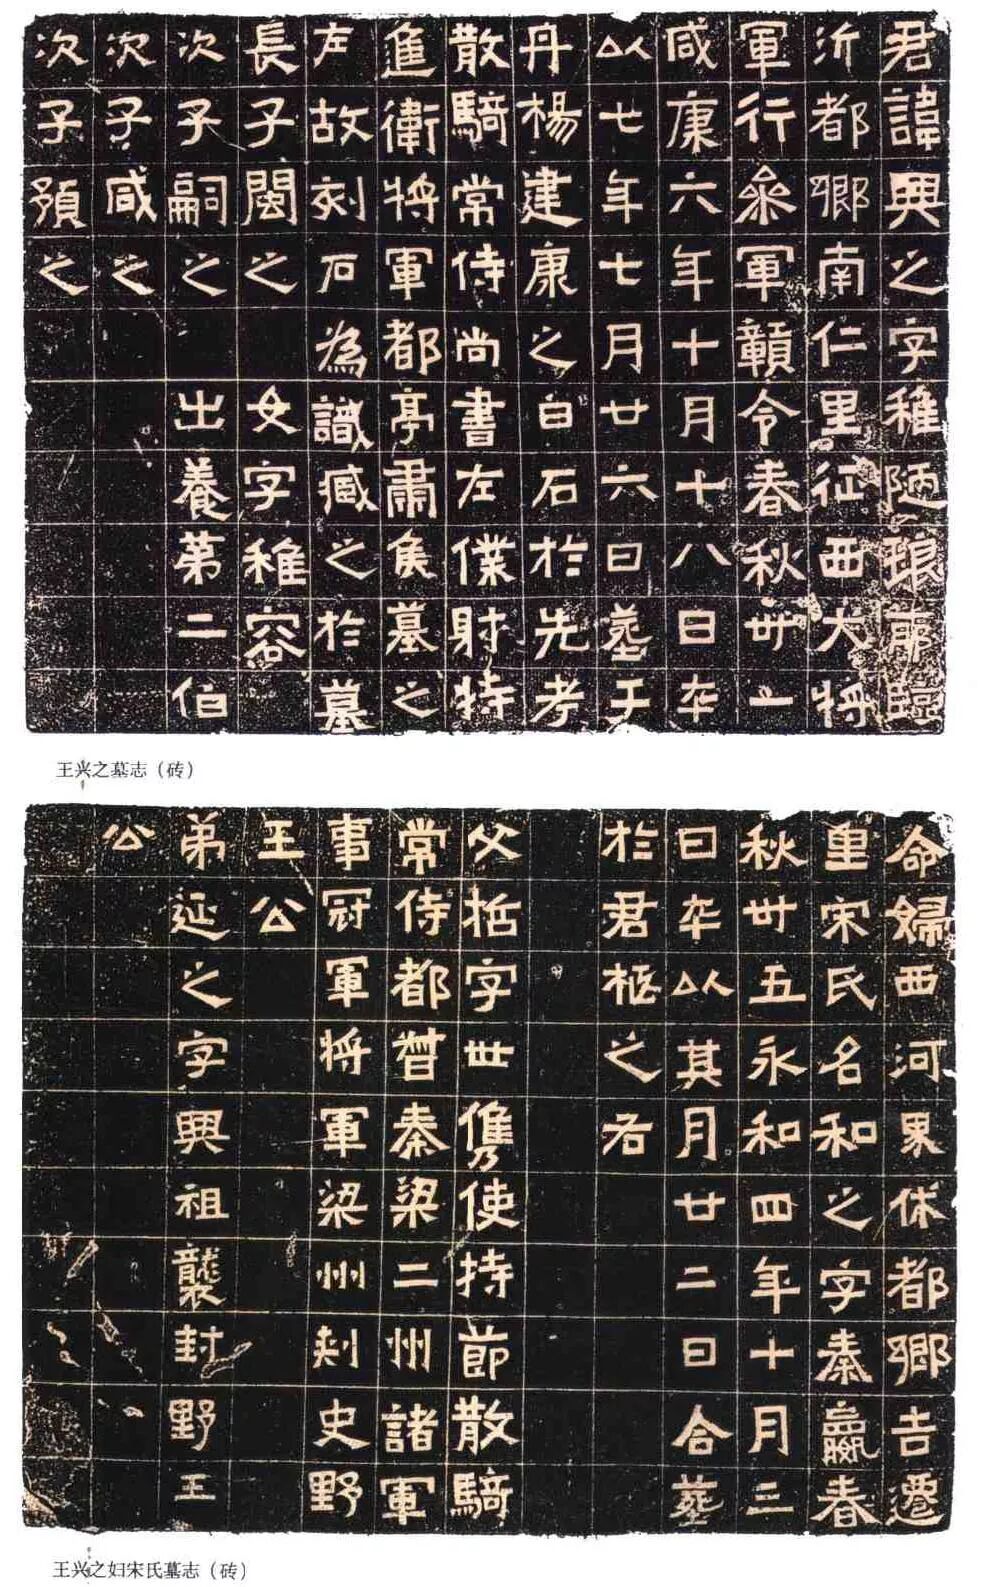 君諱興之字稚陋琅耶臨
沂都鄉南仁里征西大將
軍行參軍贛令春秋卅一
咸康六年十月十八日卒
以七年七月廿六日葬于
丹楊建康之白石於先考
散騎常侍尚書左僕射特
進衛將軍都亭肅侯墓之
左故刻石為識臧之於墓
長子閩之 女字稚容
次子嗣之 出養第二伯
次子咸之
次子預之
王兴之墓志（砖）
命婦西河界休都鄉吉遷
里宋氏名和之字秦嬴春
秋卅五永和四年十月三
日卒以其月廿二日合葬
於君柩之右
父哲字世儁乃使持節散騎
常侍都督秦梁二州諸軍
事冠軍將軍梁州刺史野
王公
弟延之字興祖襲封野王
公
王兴之妇宋氏墓志（砖）